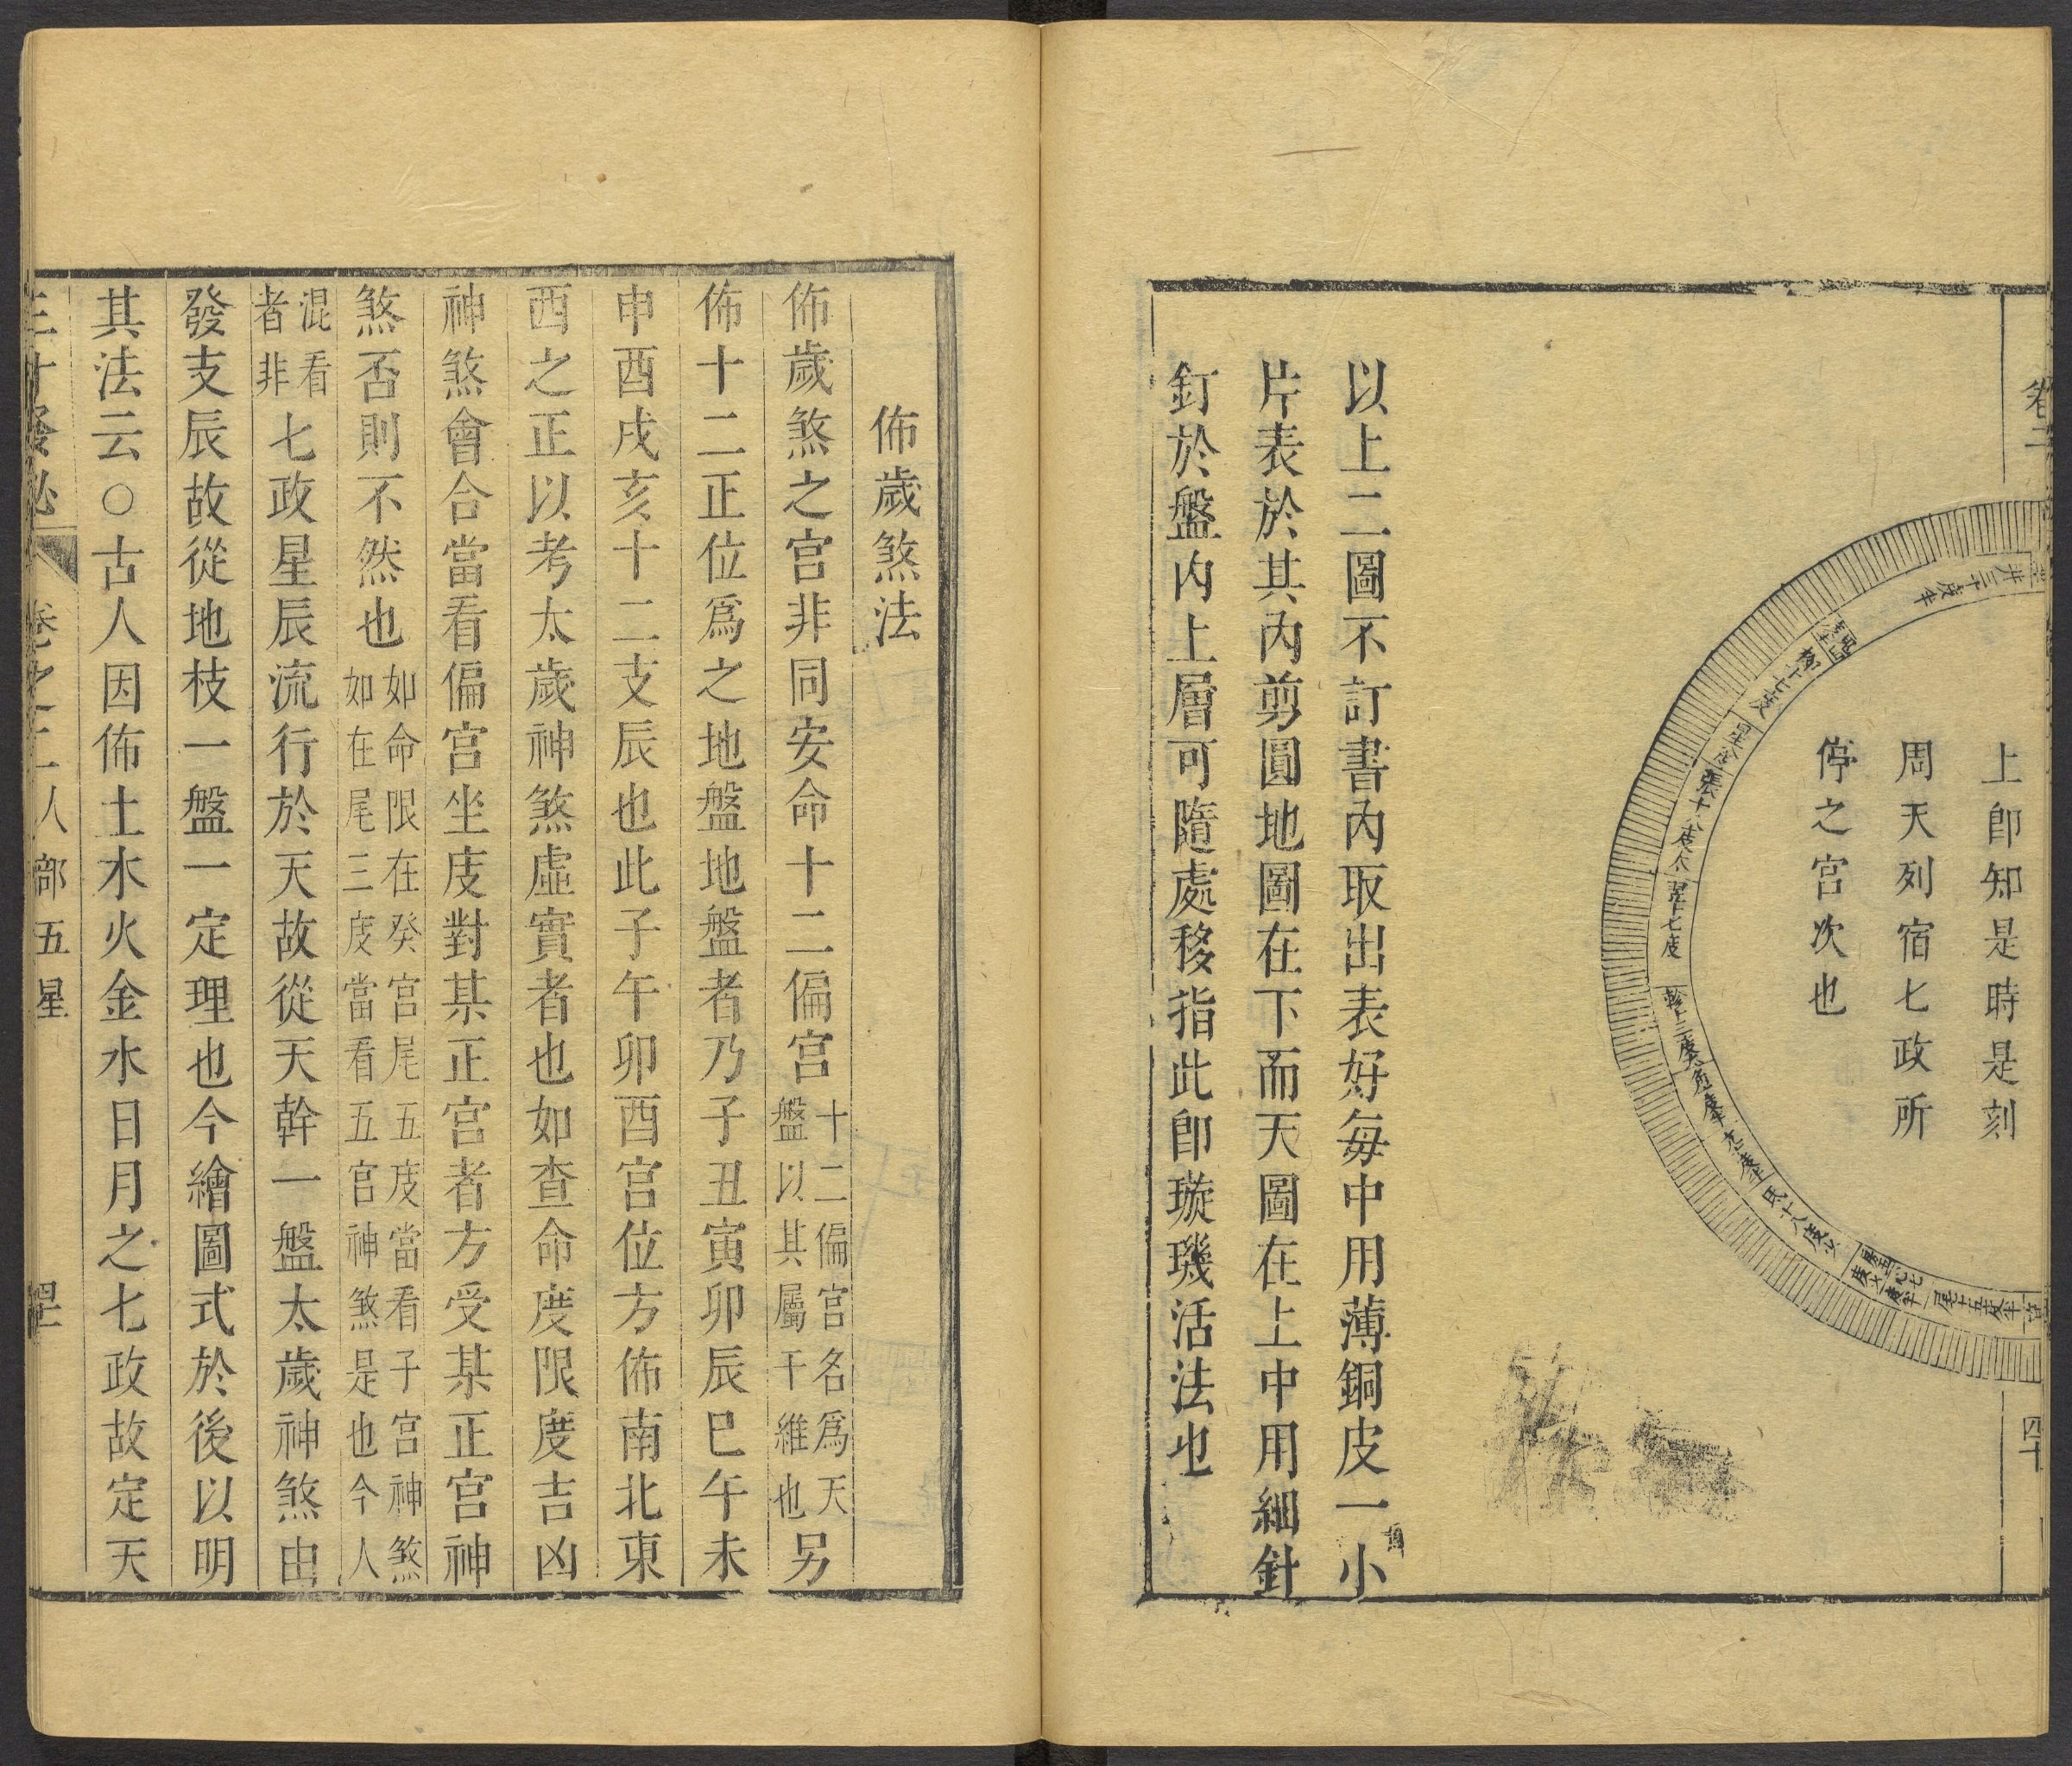 卷二
四十
上卽知是時是刻
周天列宿七政所
停之宮次也
以上二圖不訂書內取出表好每中用薄銅皮一小
片表於其內剪圓地圖在下而天圖在上中用細針
釘於盤內上層可隨處移指此卽璇璣活法也
佈歲煞法
佈歲煞之宮非同安命十二偏宮十二偏宮名爲天
盤以其屬干維也另
佈十二正位爲之地盤地盤者乃子丑寅卯辰巳午未
申酉戌亥十二支辰也此子午卯酉宮位方佈南北東
西之正以考太歲神煞虛實者也如查命度限度吉凶
神煞會合當看偏宮坐度對某正宮者方受某正宮神
煞否則不然也如命限在癸宮尾五度當看子宮神煞
如在尾三度當看丑宮神煞是也今人
混看
者非七政星辰流行於天故從天幹一盤太歲神煞由
發支辰故從地枝一盤一定理也今繪圖式於後以明
其法云○古人因佈土木火金水日月之七政故定天
卷之二人部五星